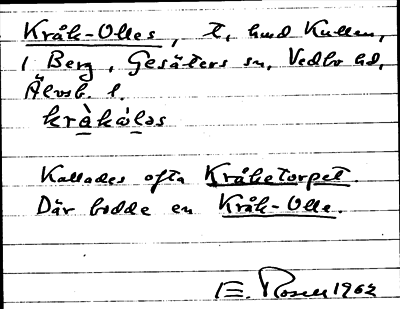 Kråk-Olles, t, und Kullen,
1 Berg, Gesäters sn, Vedbo hd,
Älvsb. l.
kràkólǝs
Kallades ofta Kråketorpet.
Där bodde en Kråk-Olle.
E. Rosell 1962